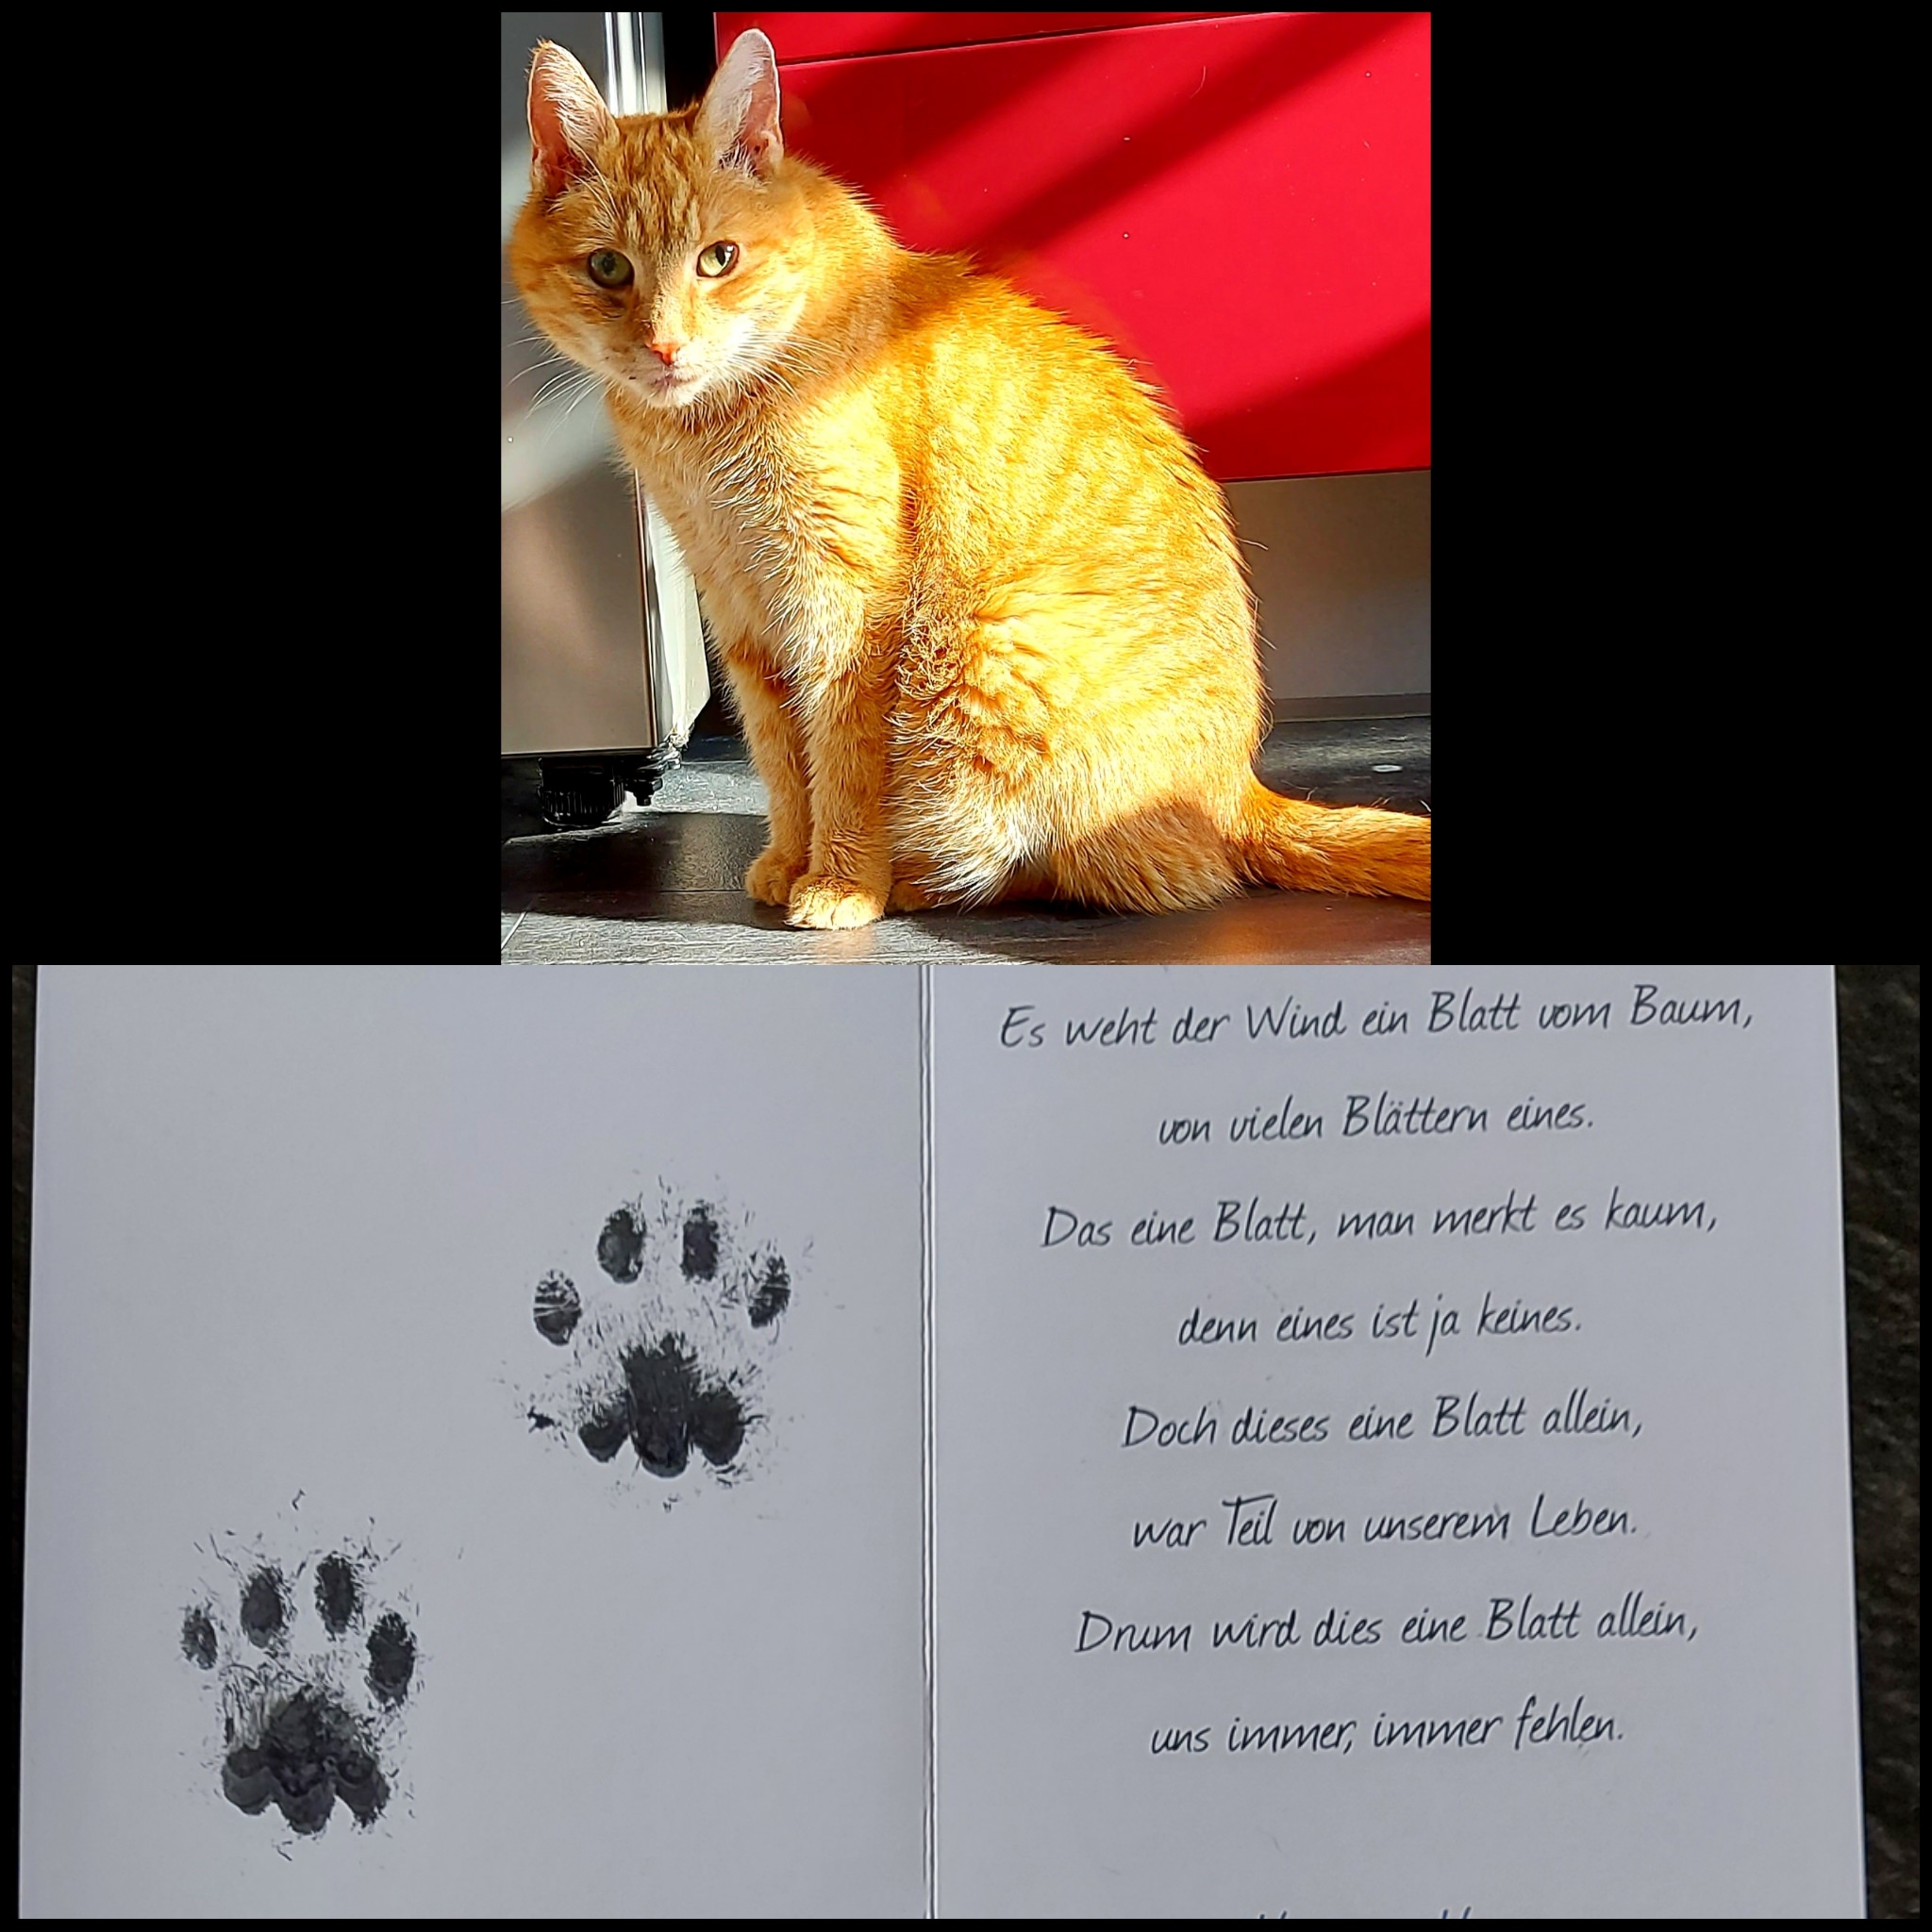 Es weht der Wind ein Blatt vom Baum,
von vielen Blättern eines.
Das eine Blatt, man merkt es kaum,
denn eines ist ja keines.
Doch dieses eine Blatt allein,
war Teil von unserem Leben.
Drum wird dies eine Blatt allein,
uns immer, immer fehlen.